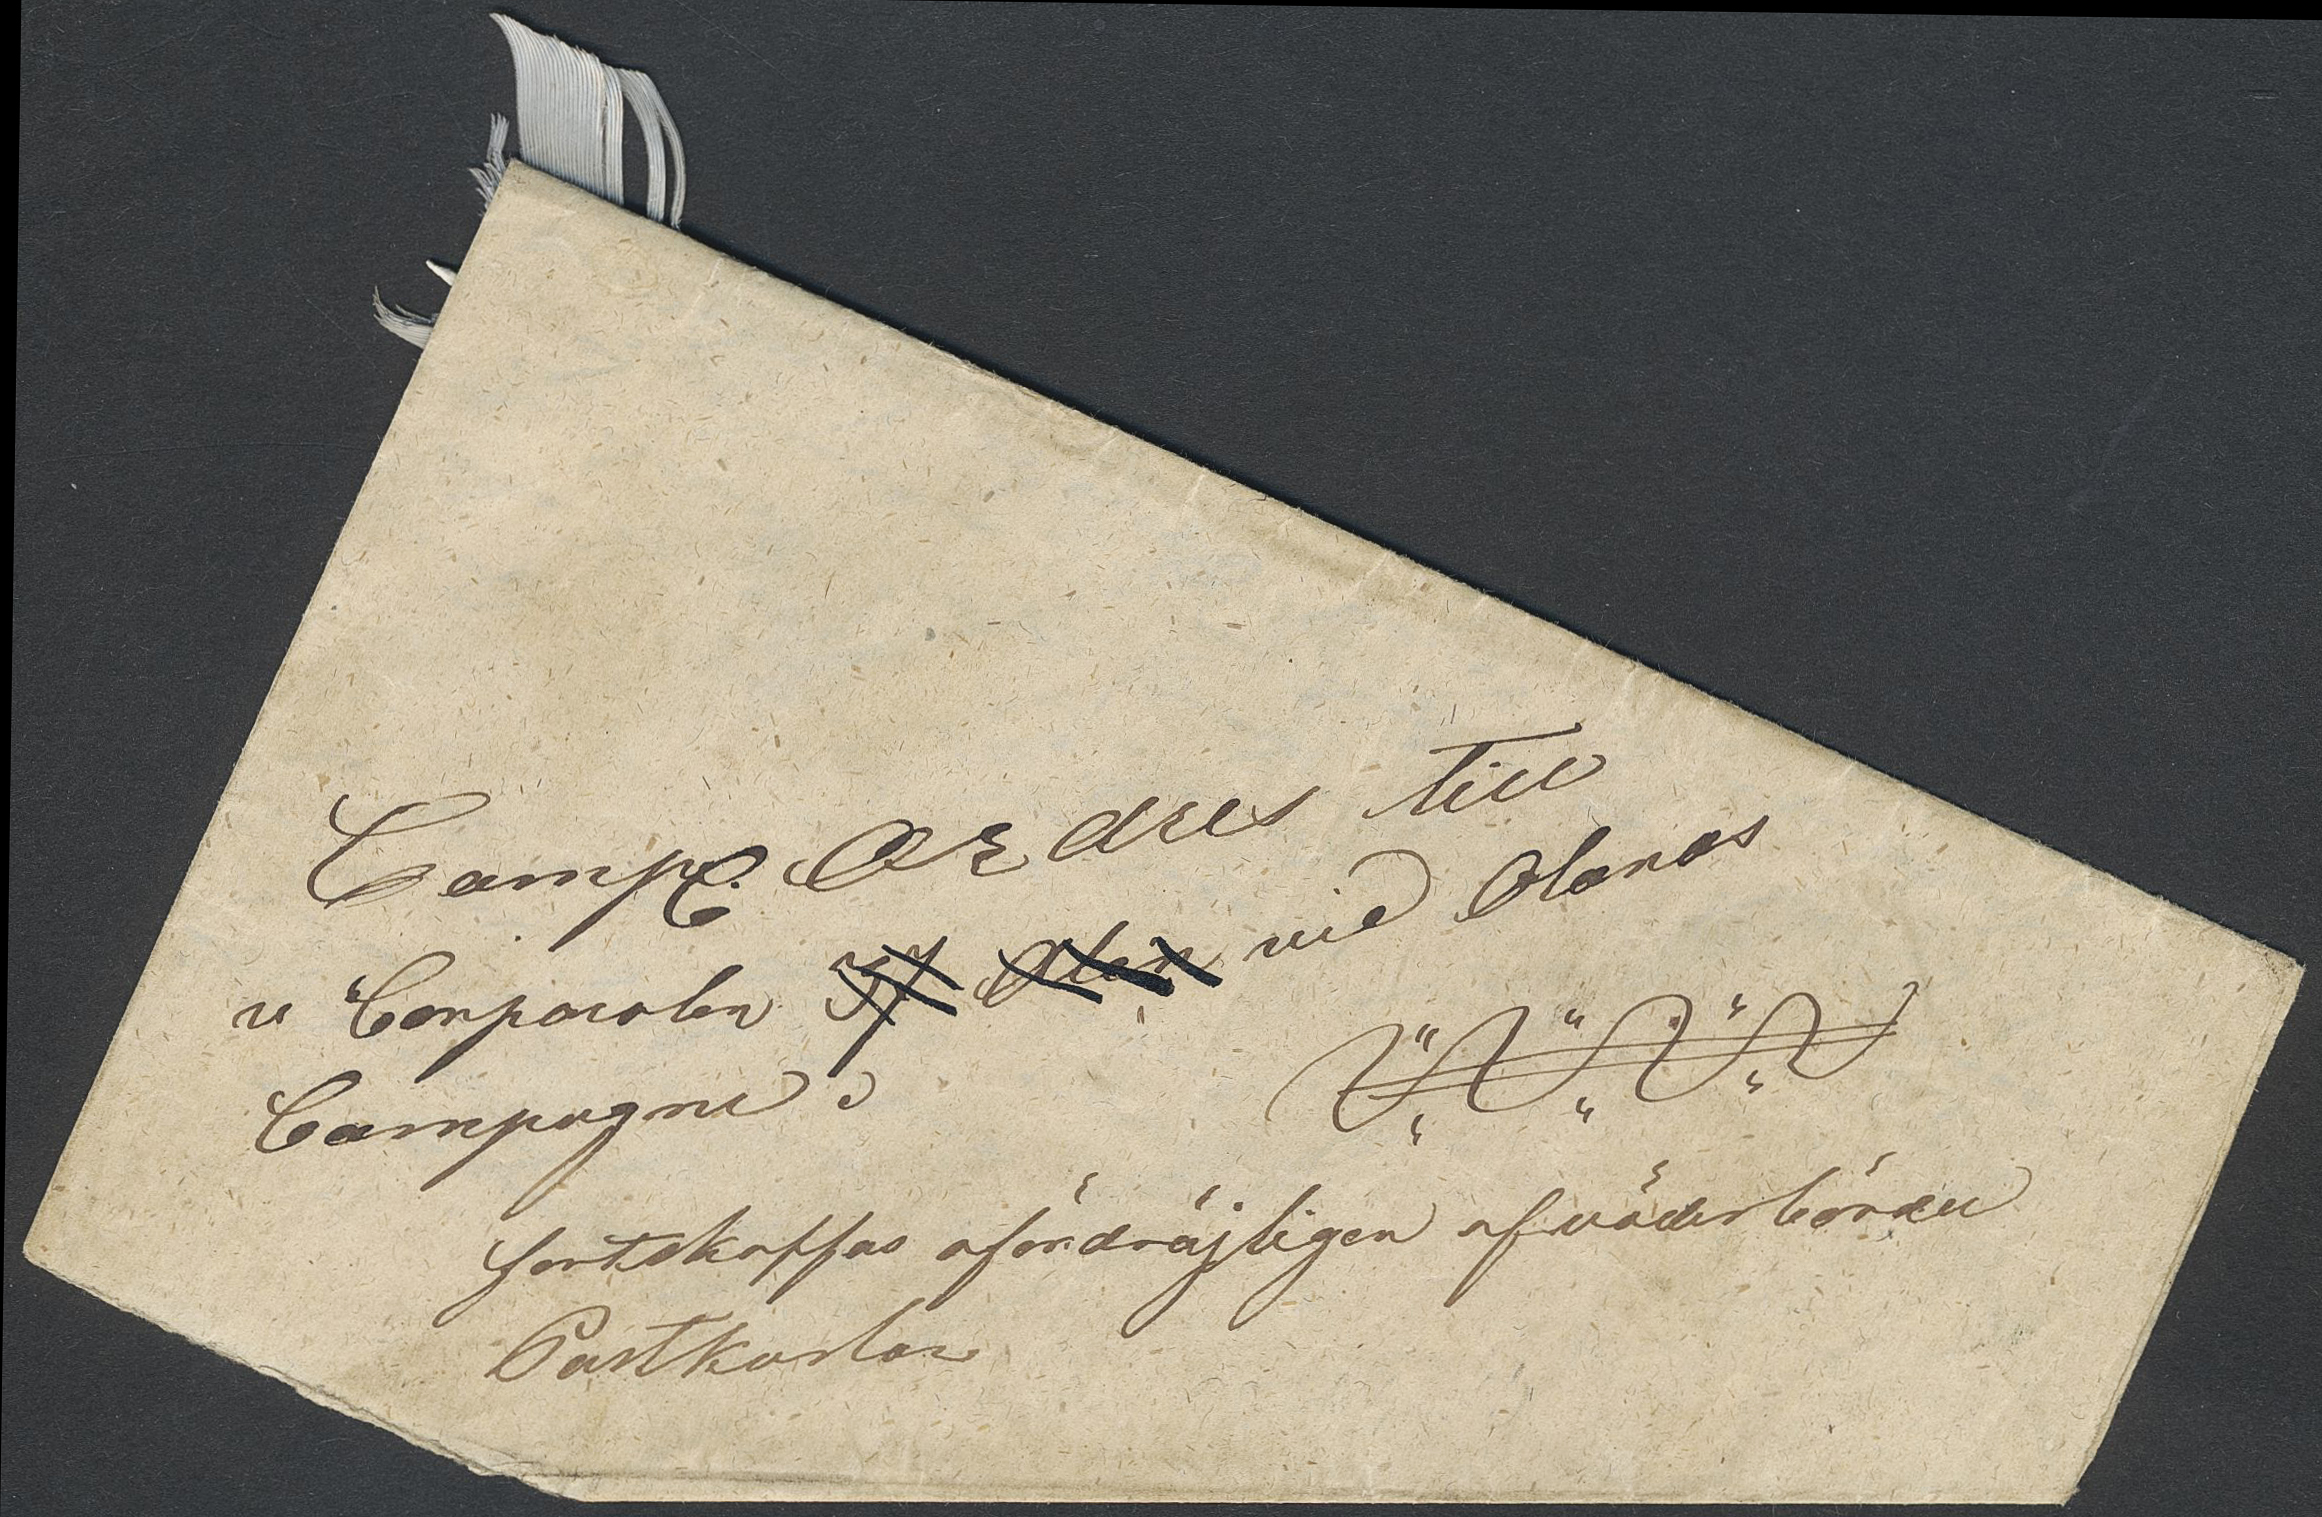 Comp. Ordres till
v Corporalen 37 Alen vid Olanas
Compagnie
fortskaffas ofördröjligen af väderbörden
Postkarlar